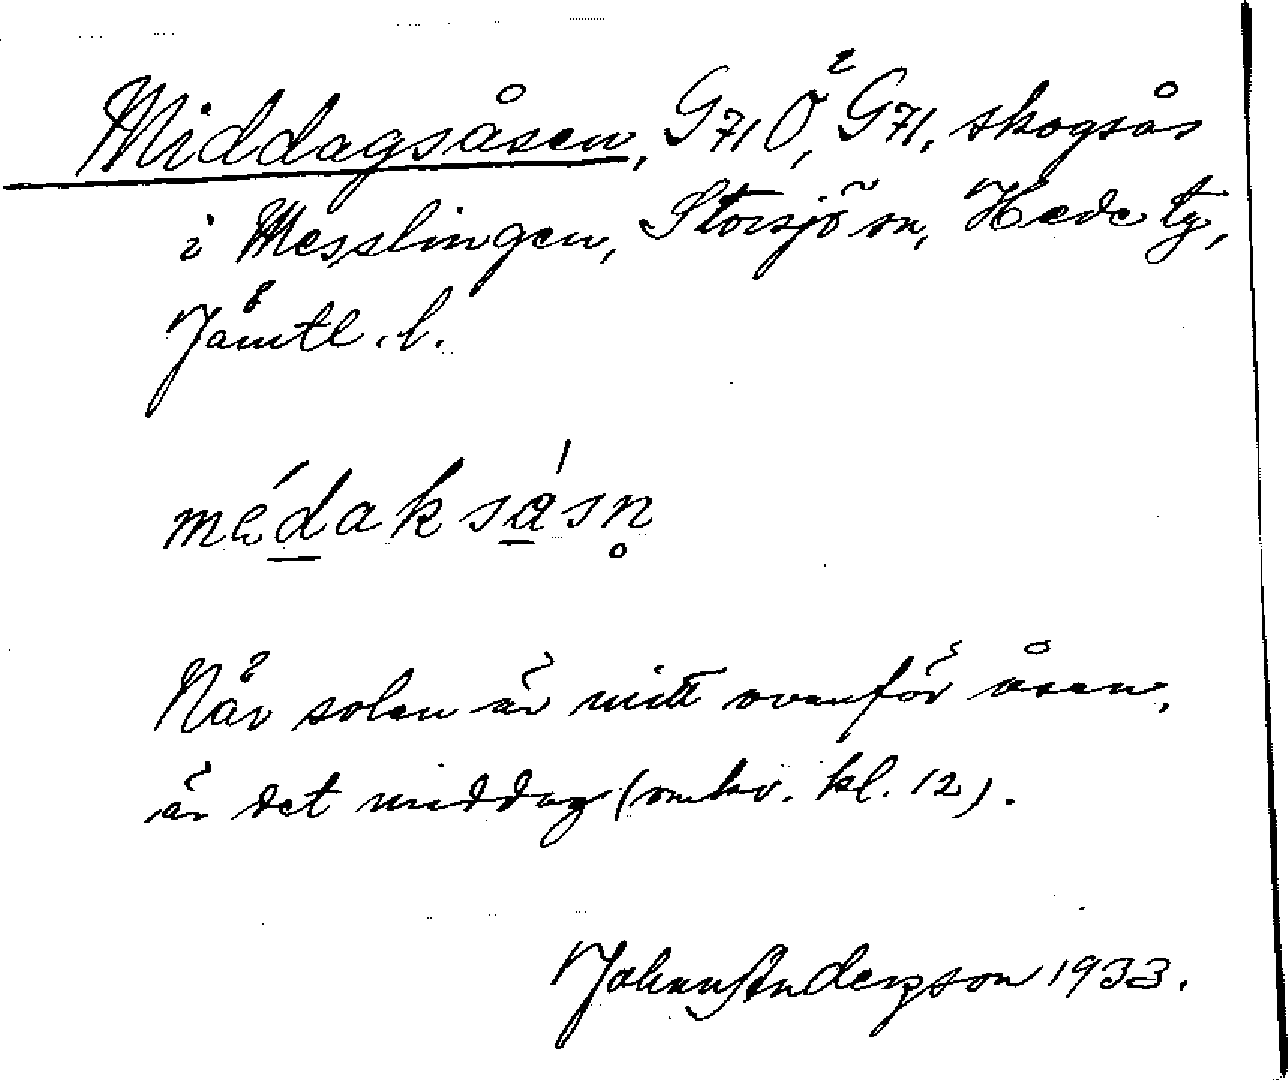 Middagsåsen, G71Ö, G71, skogsås
i Messlingen, Storsjö sn, Hede tg,
Jämtl. l.
médaksásn̥
När solen är mitt ovanför åsen,
är det middag (omkr. kl. 12).
Johan Anderzson 1933.